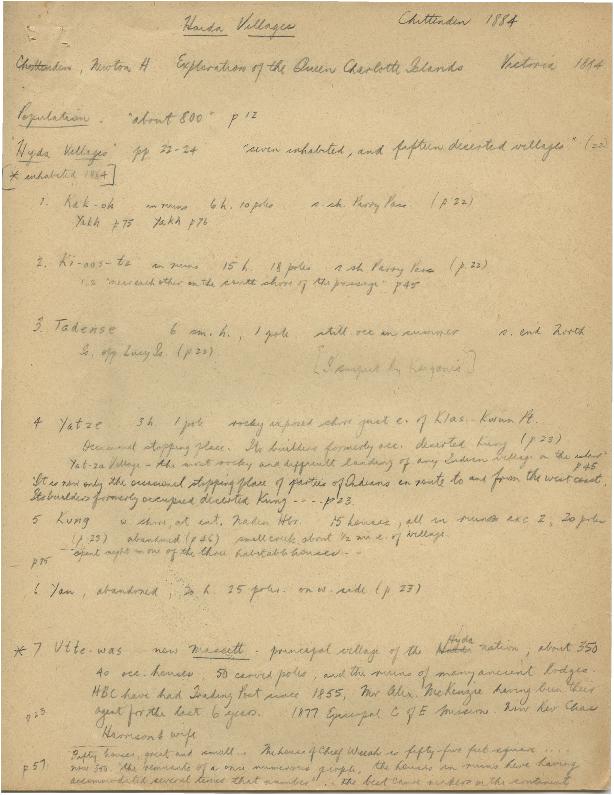 Haida Villages Chittenden 1884
Chittenden, Newton H Exploration of the Queen Charlotte Islands Victoria 1884
Population. "about 800" p 12
"Hyda Villages" pp 22-24 "seven inhabited, and fifteen deserted villages" (22)
[* inhabited 1884]
1. Kak-oh in ruins 6 h. 10 poles s. sh. Parry Pass (p 22)
Yakh p75 Yakh p76
2. Ki-oos-ta in ruins 15 h. 18 poles s sh Parry Pass (p. 22)
1, 2 "near each other on the south shore of the passage" p45
3. Tadense 6 sm. h., 1 pole still occ in summer s. end North
Is. opp Lucy Is. (p 23)
[I suspect by Kaiganis]
4 Yatze 3 h. 1 pole rocky exposed shore just e. of Klas-Kwun Pt.
Occasional stopping place. Its builders formerly occ. deserted Kung (p 23)
Yat-za Village - the most rocky and difficult landing of any Indian village on the island" p 45
It is now only the occasional stopping place of parties of Indians en route to and from the west coast.
Its builders formerly occupied deserted Kung ---- p 23.
5 Kung w. shore, at ent. Naden Hbr. 15 houses, all in ruins exc 2, 20 poles
(p. 23) abandoned (p 46) small creek about 1/2 mi e. of village.
"spent night in one of the three habitable houses--
p 75
6 Yan, abandoned, 20 h. 25 poles. on w. side (p. 23)
* 7 Utte-was - new Massett - principal village of the Hyda nation, about 350
40 occ. houses, 50 carved poles, and the ruins of many ancient lodges.
HBC have had Trading Post since 1855, Mr Alex. McKenzie having been their
p 23 agent for the last 6 years. 1877 Episcopal C of E Mission. Now Rev Chas
Harrison & wife
p 57. Fifty houses, great and small-- The house of Chief Weeah is fifty-five feet square ...
now 350. "the remnants of a once numerous people, the houses in ruins here having
accommodated several times that number" ... the best canoe makers on the continent